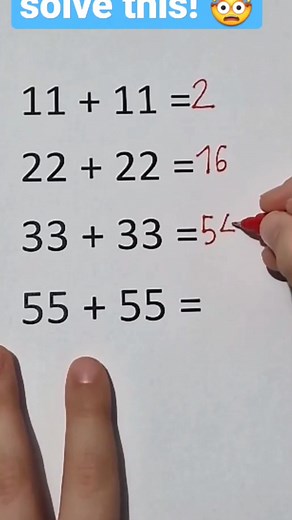 solve this! 🤯
11 + 11 =2
22 + 22 =16
33 + 33 =54
55 + 55 =